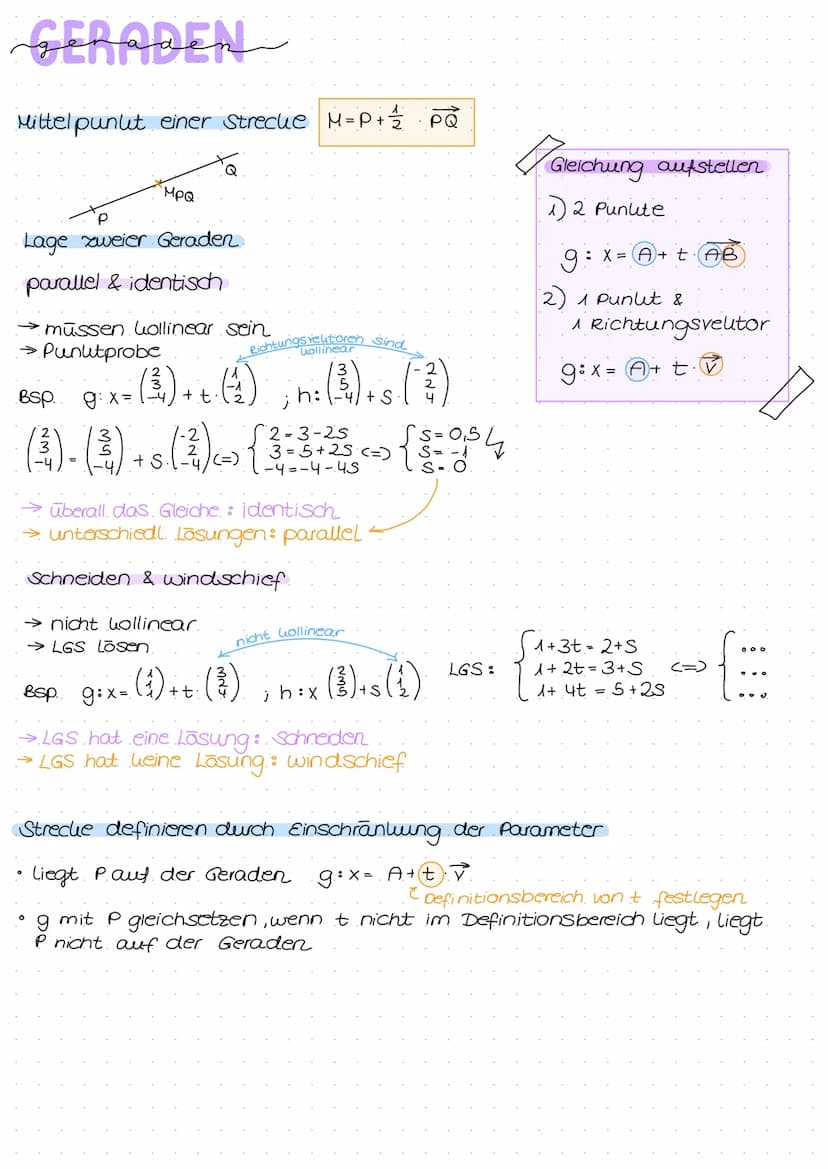 GERADEN
geraden
Mittelpunkt einer Strecke M = P + 1/2 · PQ⃗
Q
M_PQ
P
Gleichung aufstellen
1) 2 Punkte
g: x = A + t · AB⃗
2) 1 Punkt &
1 Richtungsvektor
g: x = A + t · v⃗
Lage zweier Geraden
parallel & identisch
→ müssen kollinear sein
→ Punktprobe
Richtungsvektoren sind
kollinear
Bsp. g: x = (2 3 -4) + t · (1 -1 2) ; h: (3 5 -4) + s · (-2 2 4)
(2 3 -4) = (3 5 -4) + s · (-2 2 -4) <=> { 2 = 3 - 2s 3 = 5 + 2s -4 = -4 - 4s <=> { s = 0,5 s = -1 s = 0 ↯
→ überall das Gleiche : identisch
→ unterschiedl. Lösungen : parallel
Schneiden & windschief
→ nicht kollinear
→ LGS lösen
nicht kollinear
Bsp. g: x = (1 1 1) + t · (3 2 4) ; h: x (2 3 5) + s (1 1 2) LGS : { 1 + 3t = 2 + s 1 + 2t = 3 + s 1 + 4t = 5 + 2s <=> { ... ... ...
→ LGS hat eine Lösung : Schneiden
→ LGS hat keine Lösung : windschief
Strecke definieren durch Einschränkung der Parameter
• liegt P auf der Geraden g: x = A + t · v⃗
Definitionsbereich von t festlegen
• g mit P gleichsetzen, wenn t nicht im Definitionsbereich liegt, liegt
P nicht auf der Geraden